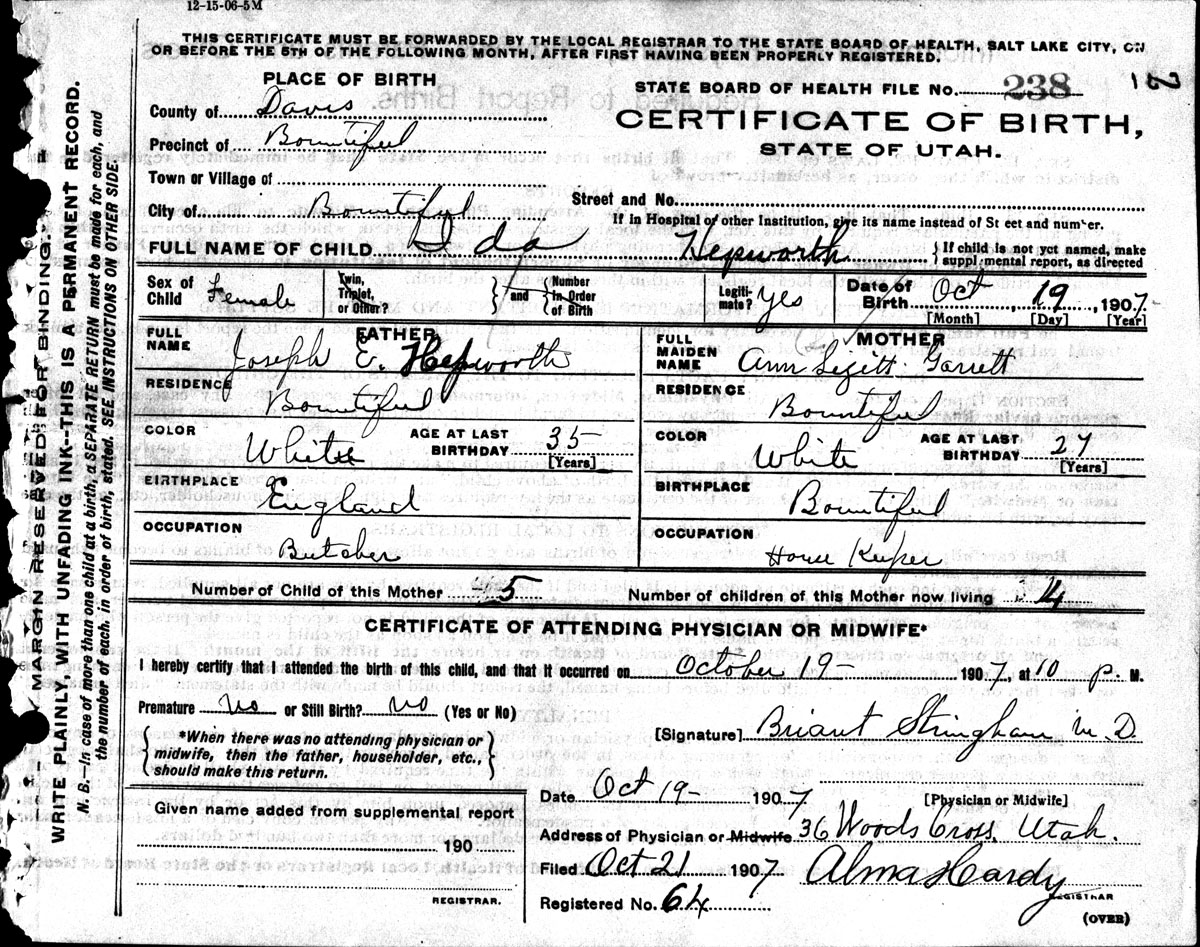 12-15-06-5M
THIS CERTIFICATE MUST BE FORWARDED BY THE LOCAL REGISTRAR TO THE STATE BOARD OF HEALTH, SALT LAKE CITY, ON
OR BEFORE THE 5TH OF THE FOLLOWING MONTH, AFTER FIRST HAVING BEEN PROPERLY REGISTERED.
PLACE OF BIRTH
STATE BOARD OF HEALTH FILE No. 238
County of Davis
CERTIFICATE OF BIRTH,
Precinct of Bountiful
STATE OF UTAH.
Town or Village of
Street and No.
City of Bountiful
If in Hospital of other Institution, give its name instead of St eet and number.
FULL NAME OF CHILD Ida Hepworth
{ If child is not yet named, make
suppl mental report, as directed
Sex of Child Female
Twin, Triplet, or Other?
} and { Number in Order of Birth
Legiti- mate? yes
Date of Birth Oct 19, 1907
[Month] [Day] [Year]
FATHER
FULL NAME Joseph E. Hepworth
MOTHER
FULL MAIDEN NAME Ann Garrett
RESIDENCE Bountiful
RESIDENCE Bountiful
COLOR White
AGE AT LAST BIRTHDAY 35
[Years]
COLOR White
AGE AT LAST BIRTHDAY 27
[Years]
BIRTHPLACE England
BIRTHPLACE Bountiful
OCCUPATION Butcher
OCCUPATION House Keeper
Number of Child of this Mother 5
Number of children of this Mother now living 4
CERTIFICATE OF ATTENDING PHYSICIAN OR MIDWIFE*
I hereby certify that I attended the birth of this child, and that it occurred on October 19- 1907, at 10 p. M.
Premature no or Still Birth? no (Yes or No)
{ *When there was no attending physician or
midwife, then the father, householder, etc.,
should make this return. }
[Signature] Briant Stringham M D.
[Physician or Midwife]
Date Oct 19- 1907
Given name added from supplemental report
190
REGISTRAR.
Address of Physician or Midwife 36 Woods Cross, Utah.
Filed Oct 21 1907 Alma Hardy
REGISTRAR
Registered No. 64
(OVER)
MARGIN RESERVED FOR BINDING.
WRITE PLAINLY, WITH UNFADING INK--THIS IS A PERMANENT RECORD.
N. B.--In case of more than one child at a birth, a SEPARATE RETURN must be made for each, and
the number of each, in order of birth, stated. SEE INSTRUCTIONS ON OTHER SIDE